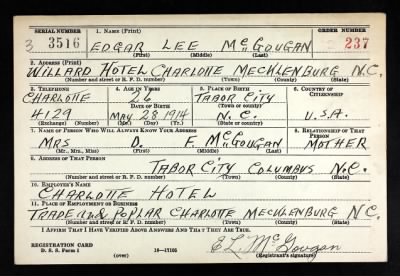 SERIAL NUMBER 1. Name (Print) ORDER NUMBER
3 3516 EDGAR LEE McGOUGAN 237
(First) (Middle) (Last)
2. Address (Print)
WILLARD HOTEL CHARLOTTE MECKLENBURG N.C.
(Number and street or R. F. D. number) (Town) (County) (State)
3. Telephone 4. Age in Years 5. Place of Birth 6. Country of Citizenship
CHARLOTTE 26 TABOR CITY
Date of Birth (Town or county)
4129 MAY 28 1914 N.C. U.S.A.
(Exchange) (Number) (Mo.) (Day) (Yr.) (State or country)
7. Name of Person Who Will Always Know Your Address 8. Relationship of That Person
MRS D. F. McGOUGAN MOTHER
(Mr., Mrs., Miss) (First) (Middle) (Last)
9. Address of That Person
TABOR CITY COLUMBUS N.C.
(Number and street or R. F. D. number) (Town) (County) (State)
10. Employer's Name
CHARLOTTE HOTEL
11. Place of Employment or Business
POPLAR CHARLOTTE MECKLENBURG N.C.
(Number and street or R. F. D. number) (Town) (County) (State)
I Affirm That I Have Verified Above Answers and That They Are True.
REGISTRATION CARD
D. S. S. Form 1 16—17105 E L McGougan
(over) (Registrant's signature)